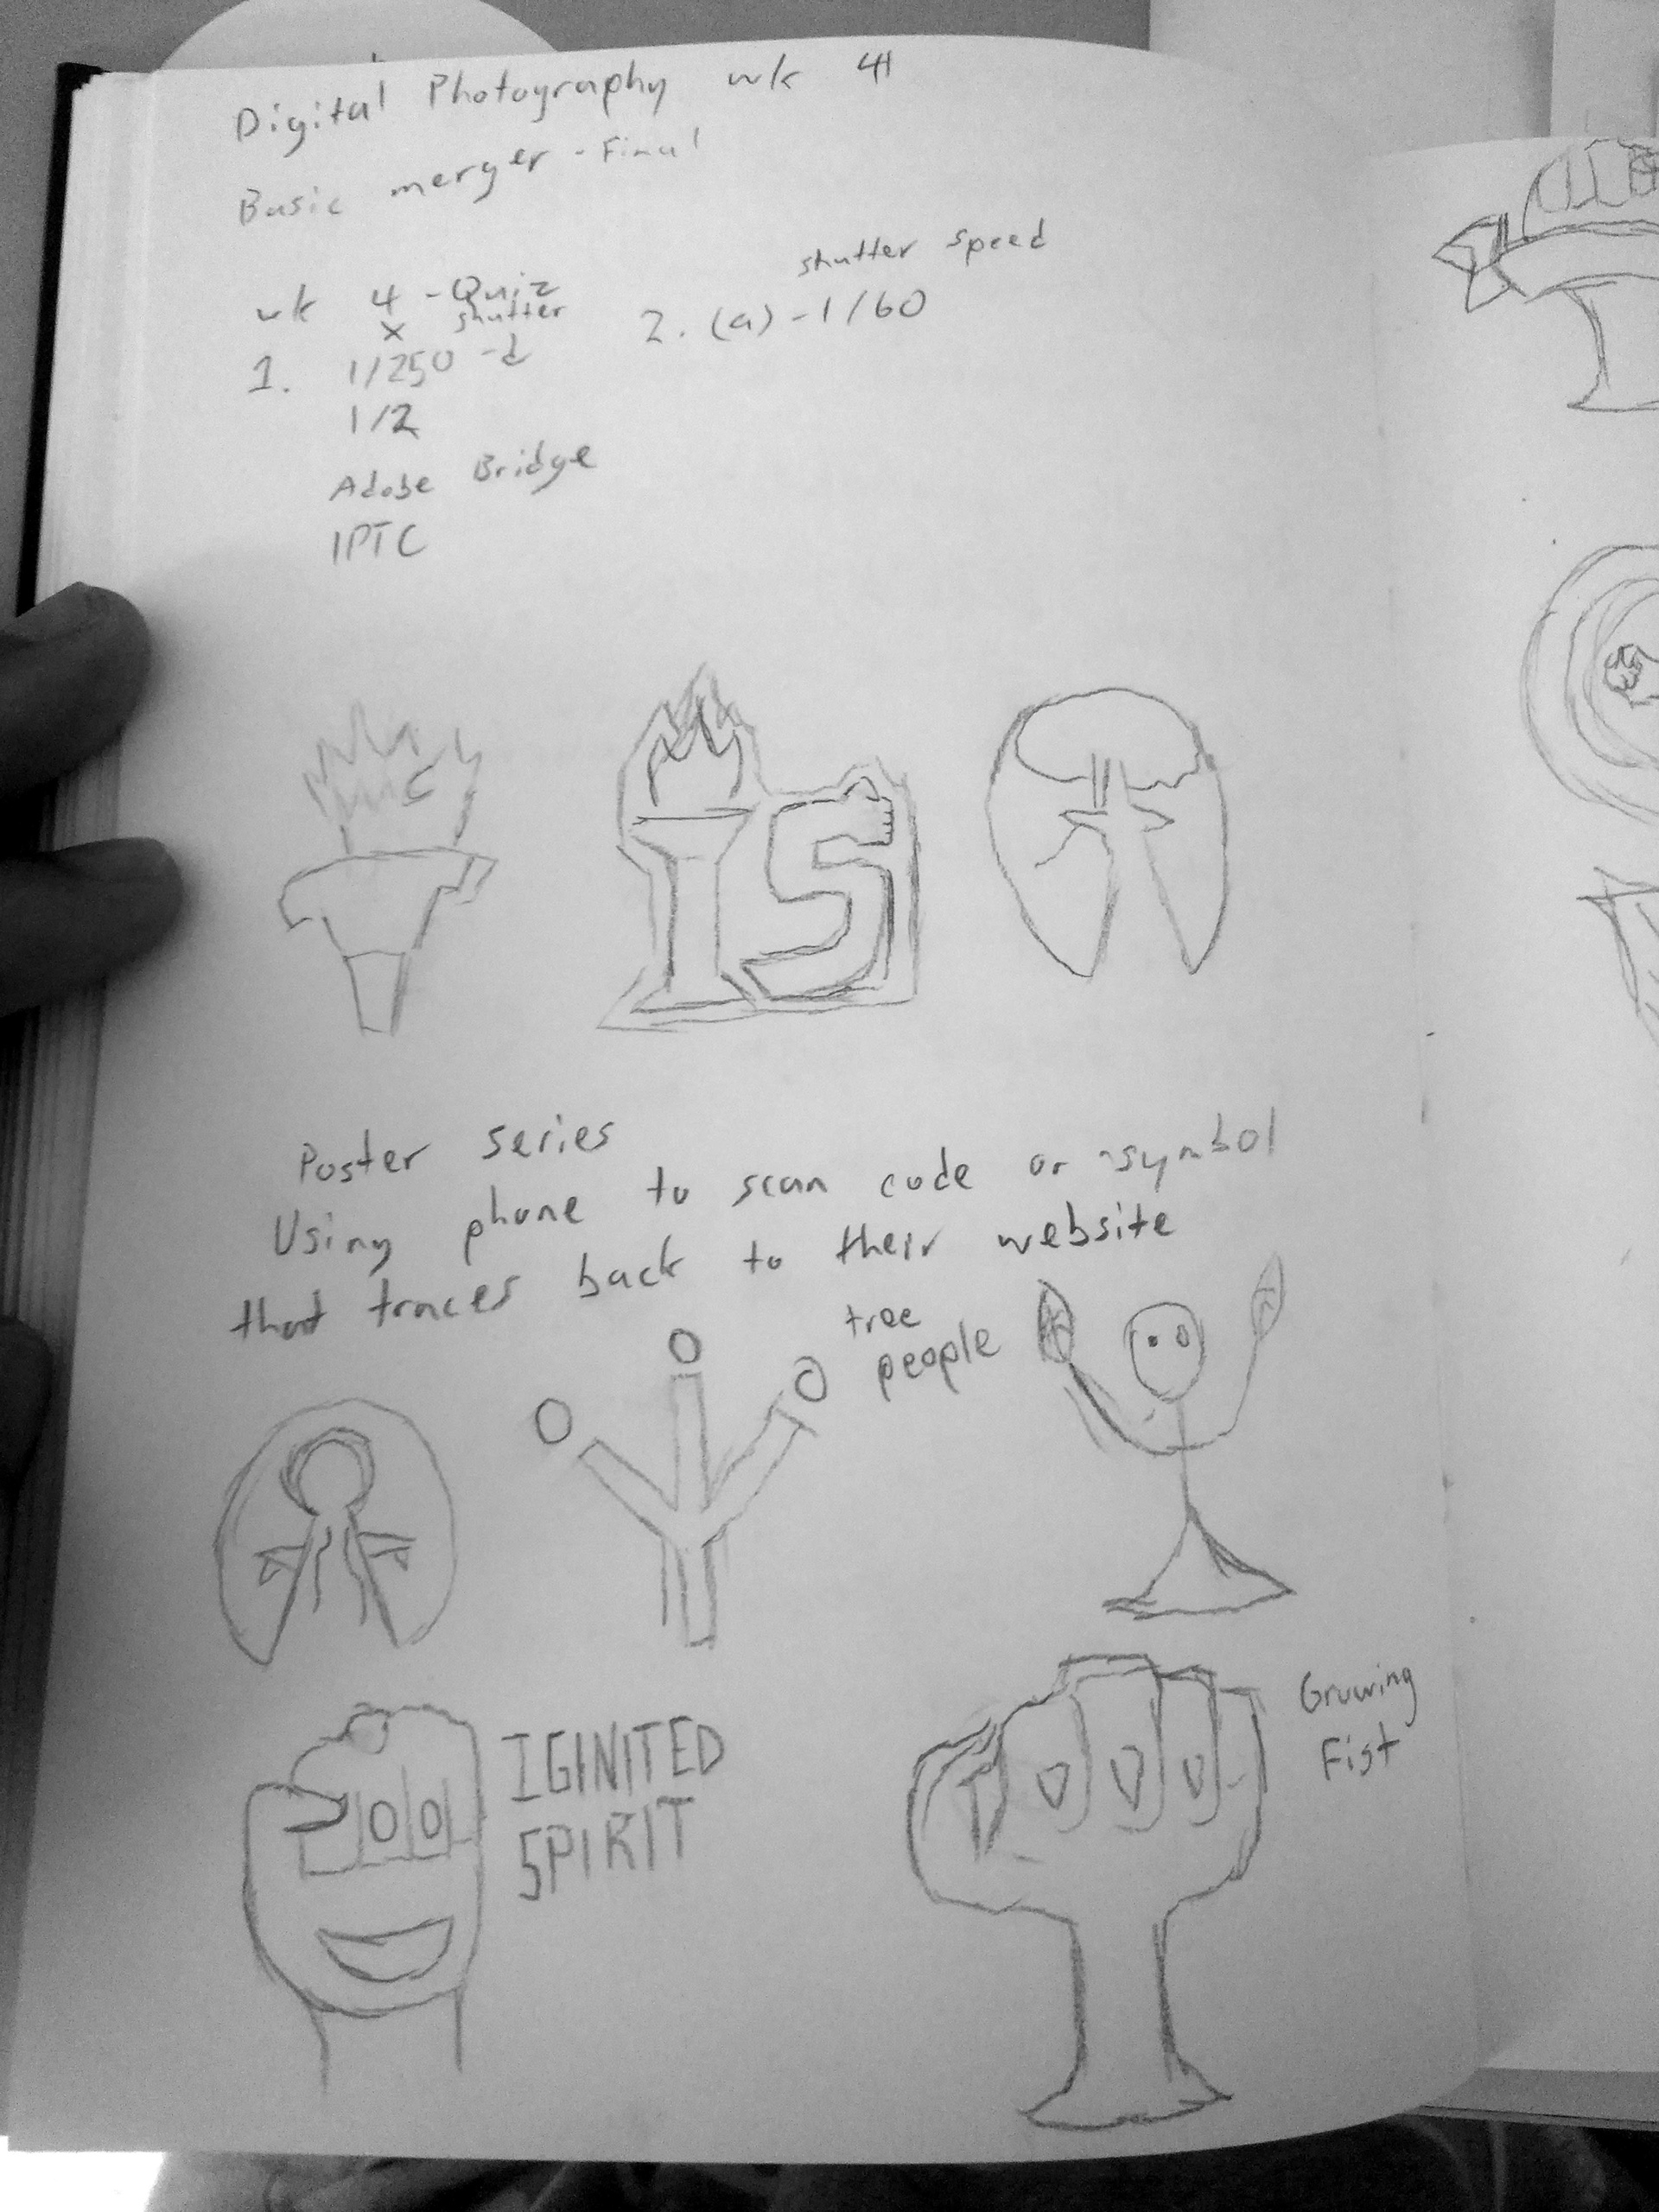 Digital Photography wk 4
Basic merger - Final
wk 4 - Quiz
x shutter
1. 1/250 - d
1/2
Adobe Bridge
IPTC
shutter speed
2. (a) - 1/60
IS
Poster series
Using phone to scan code or symbol
that traces back to their website
tree
people
IGINITED
SPIRIT
Growing
Fist